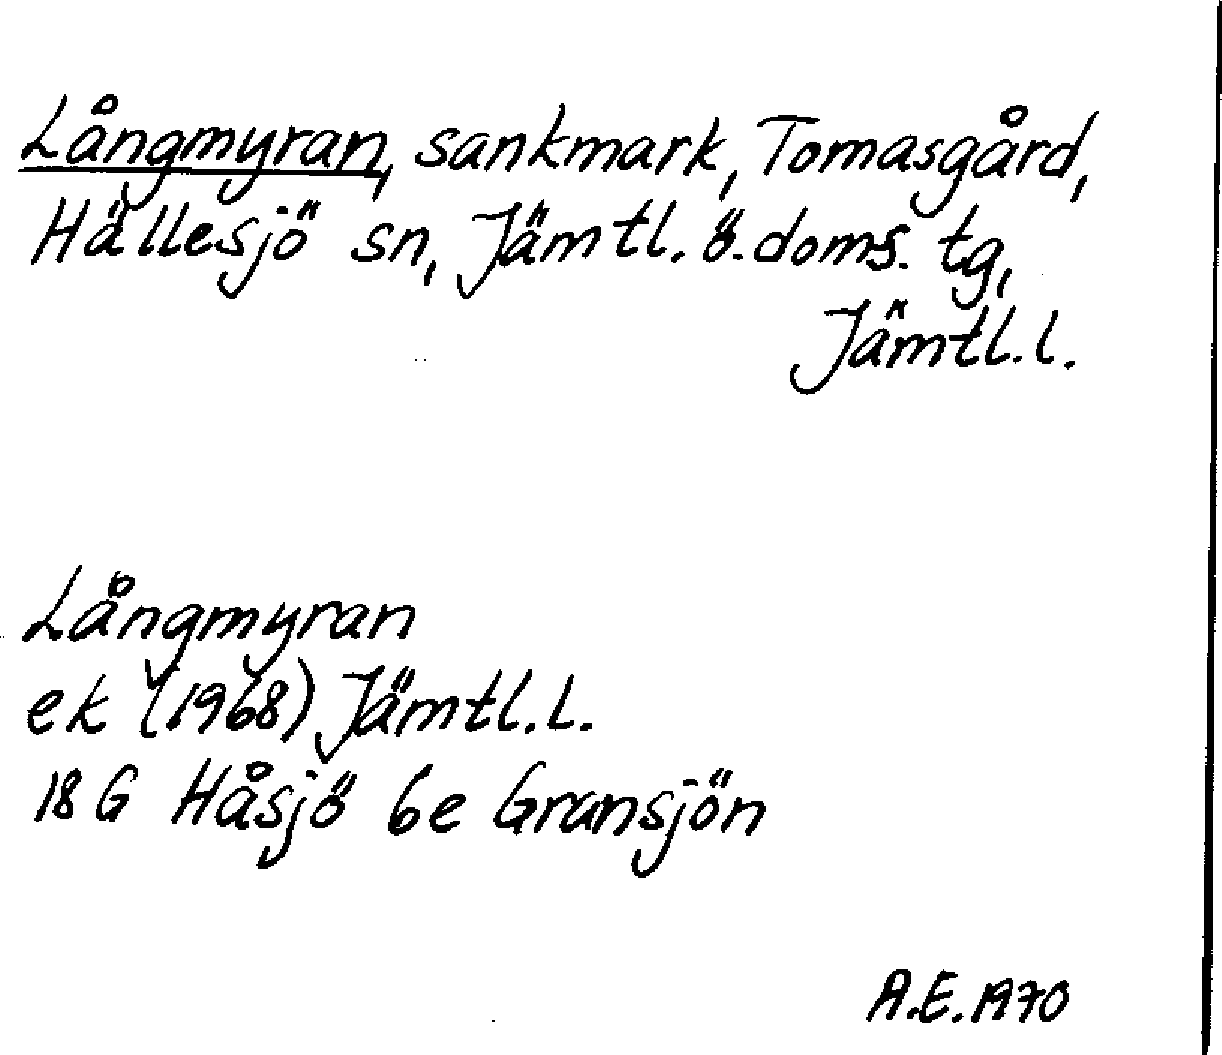 Långmyran, sankmark, Tomasgård,
Hällesjö sn, Jämtl. ö. doms. tg,
Jämtl. l.
Långmyran
ek (1968) Jämtl. l.
18 G Håsjö 6e Gransjön
A.E. 1970